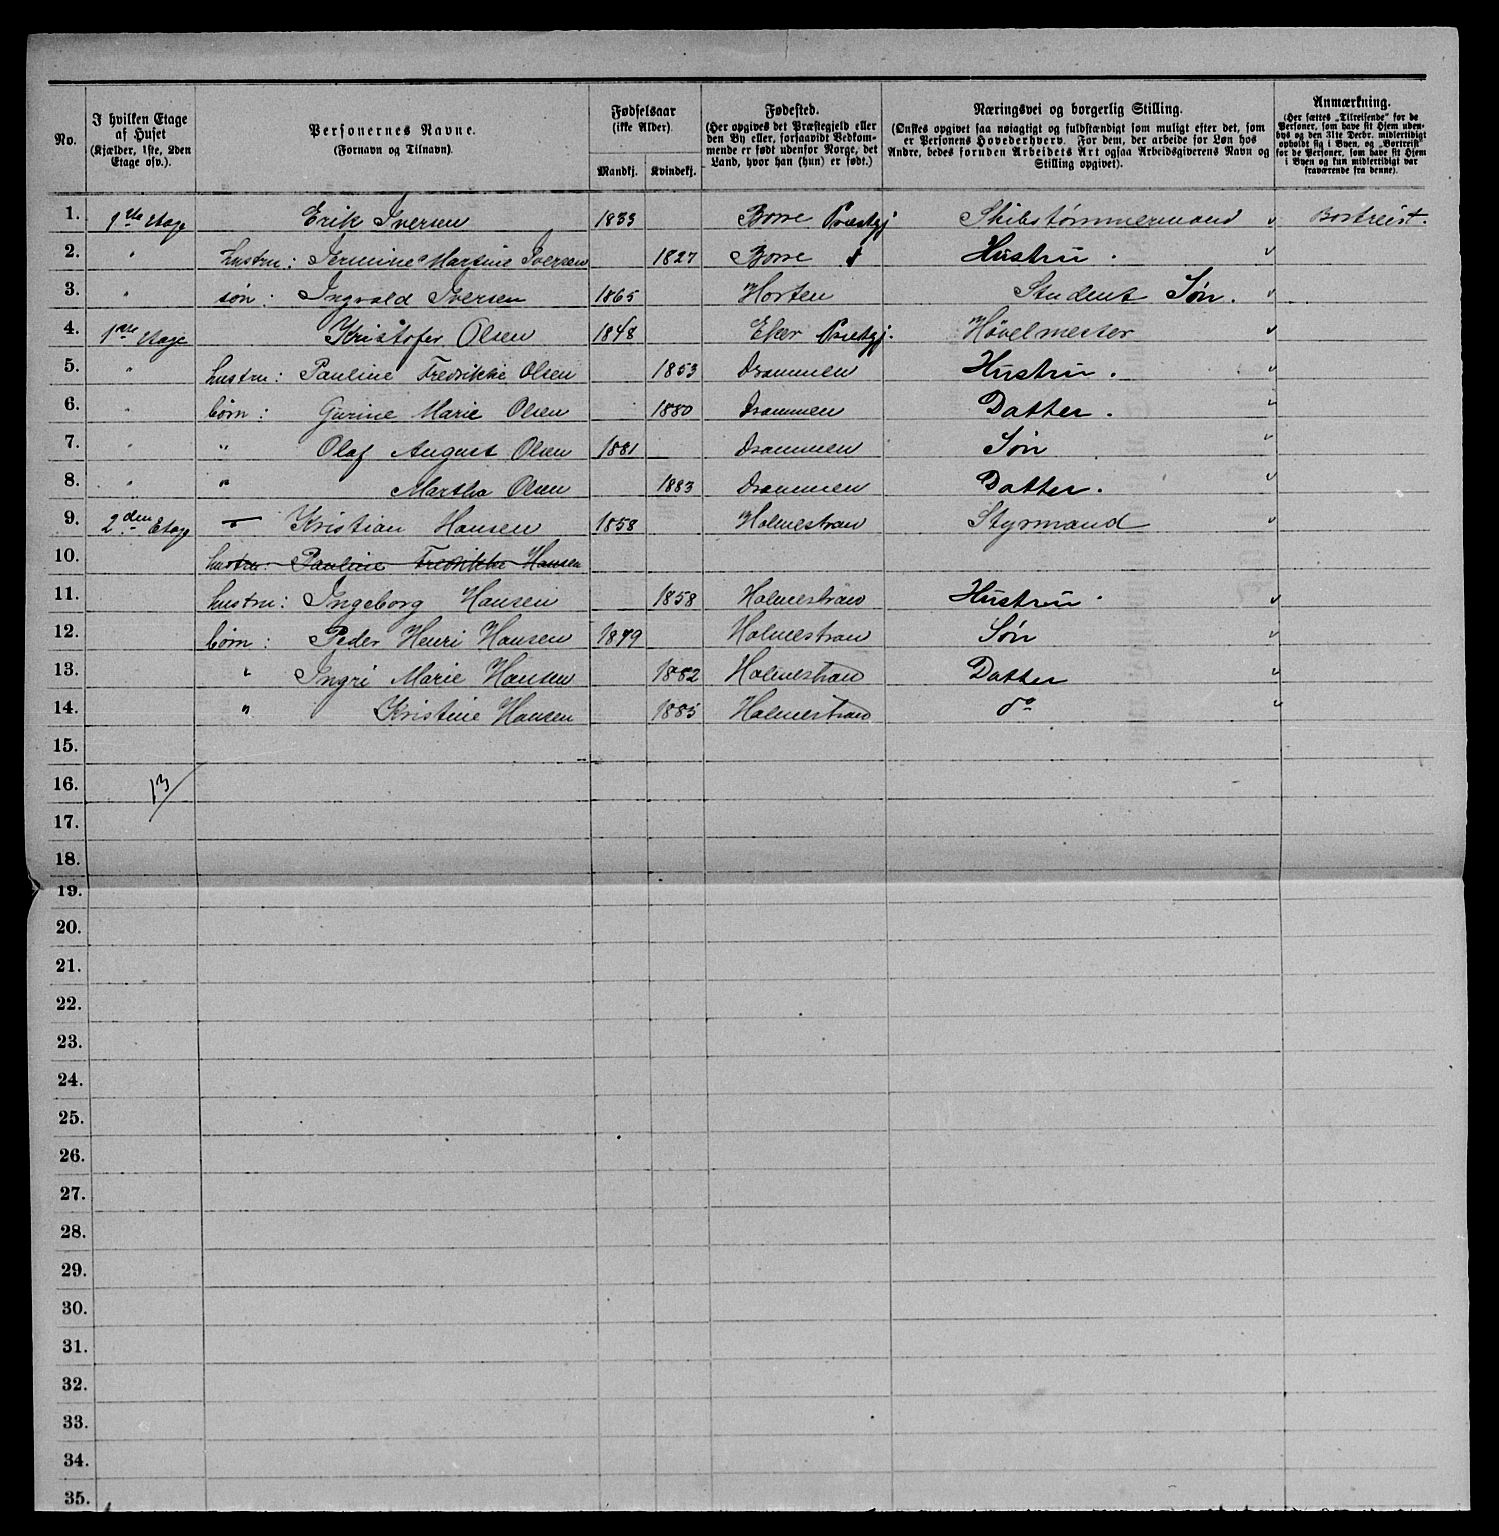 No.
I hvilken Etage
af Huset
(Kjælder, 1ste, 2den
Etage osv.).
Personernes Navne.
(Fornavn og Tilnavn).
Fødselsaar
(ikke Alder).
Mandkj.
Kvindekj.
Fødested.
(Her opgives det Præstegjeld eller
den By eller, forsaavidt Vedkom-
mende er født udenfor Norge, det
Land, hvor han (hun) er født.)
Næringsvei og borgerlig Stilling.
(Ønskes opgivet saa nøiagtigt og fuldstændigt som muligt efter det, som
er Personens Hovederhverv. For dem, der arbeide for Løn hos
Andre, bedes foruden Arbeidets Art ogsaa Arbeidsgiverens Navn og
Stilling opgivet).
Anmærkning.
(Her sættes „Tilreisende" for de
Personer, som have sit Hjem uden-
bys og den 31te Decbr. midlertidigt
opholdt sig i Byen, og „Bortreist"
for de Personer, som have sit Hjem
i Byen og kun midlertidigt var
fraværende fra denne).
1. 1ste Etage Erik Iversen 1833 Borre Præstgj Skibstømmermand " Bortreist.
2. " hustru: Martine Iversen 1827 Borre Hustru. "
3. " søn: Ingvald Iversen 1865 Horten Student Søn. "
4. 1ste Etage Kristofer Olsen 1848 Eker Præstgj. Høvelmester "
5. " hustru: Pauline Fredrikke Olsen 1853 Drammen Hustru. "
6. " børn: Gurine Marie Olsen 1880 Drammen Datter. "
7. " " Olaf August Olsen 1881 Drammen Søn "
8. " " Martha Olsen 1883 Drammen Datter. "
9. 2den Etage Kristian Hansen 1858 Holmestran Styrmand "
10. hustru: Pauline Fredrikke Hansen
11. hustru: Ingeborg Hansen 1858 Holmestran Hustru. "
12. børn: Peder Henri Hansen 1879 Holmestran Søn "
13. " Ingri Marie Hansen 1882 Holmestran Datter "
14. " Kristine Hansen 1885 Holmestran do "
15.
16. 13
17.
18.
19.
20.
21.
22.
23.
24.
25.
26.
27.
28.
29.
30.
31.
32.
33.
34.
35.